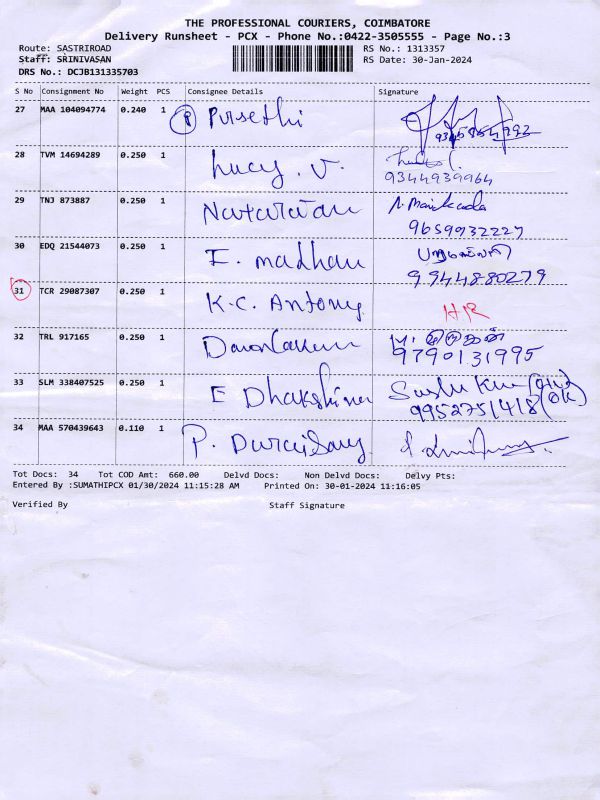 THE PROFESSIONAL COURIERS, COIMBATORE
Delivery Runsheet - PCX - Phone No.:0422-3505555 - Page No.:3
Route: SASTRIROAD RS No.: 1313357
Staff: SRINIVASAN RS Date: 30-Jan-2024
DRS No.: DCJB131335703
S No Consignment No Weight PCS Consignee Details Signature
27 MAA 104094774 0.240 1 P Pursethi
28 TVM 14694289 0.250 1 Lucy. V.
9344939964
29 TNJ 873887 0.250 1 Natarajan
9659932227
30 EDQ 21544073 0.250 1 E. madhan
9944880279
31 TCR 29087307 0.250 1 K.C. Antony HR
32 TRL 917165 0.250 1
9790131995
33 SLM 338407525 0.250 1 E Dhakshina
9952751418 (OK)
34 MAA 570439643 0.110 1 P. Duraisamy
Tot Docs: 34 Tot COD Amt: 660.00 Delvd Docs: Non Delvd Docs: Delvy Pts:
Entered By :SUMATHIPCX 01/30/2024 11:15:28 AM Printed On: 30-01-2024 11:16:05
Verified By Staff Signature